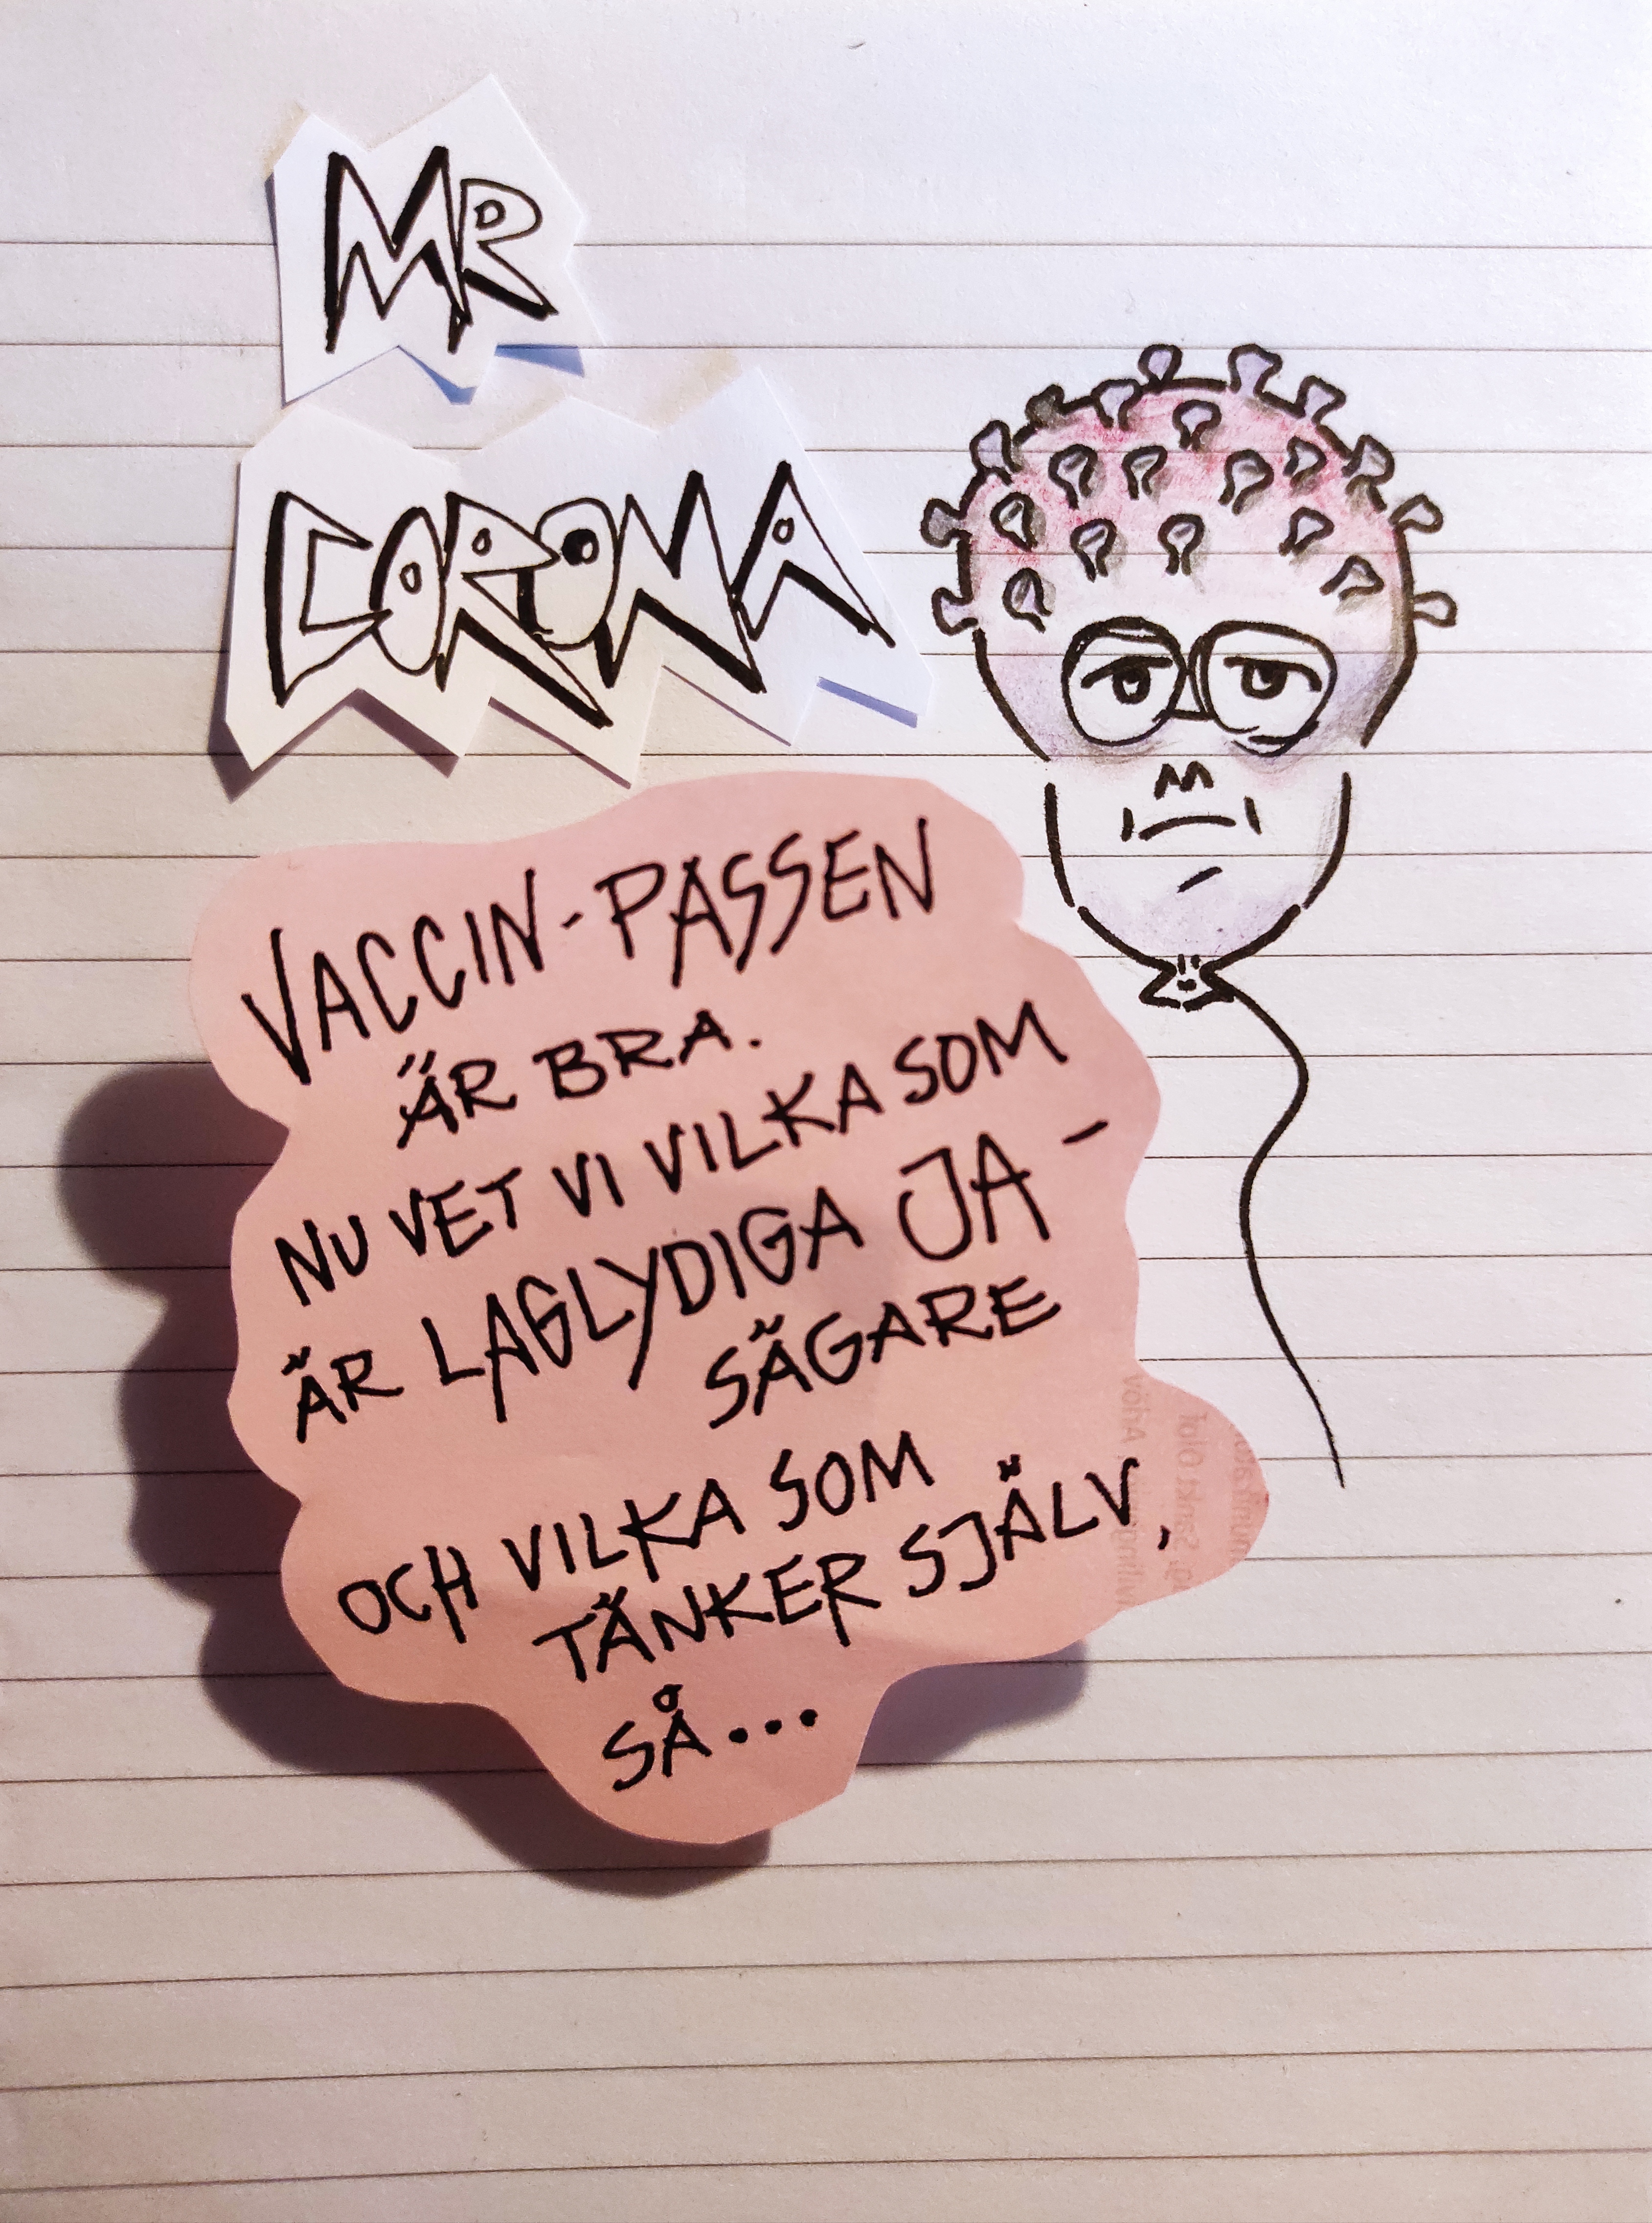 MR
CORONA
VACCIN-PASSEN
ÄR BRA.
NU VET VI VILKA SOM
ÄR LAGLYDIGA JA-
SÄGARE
OCH VILKA SOM
TÄNKER SJÄLV,
SÅ...